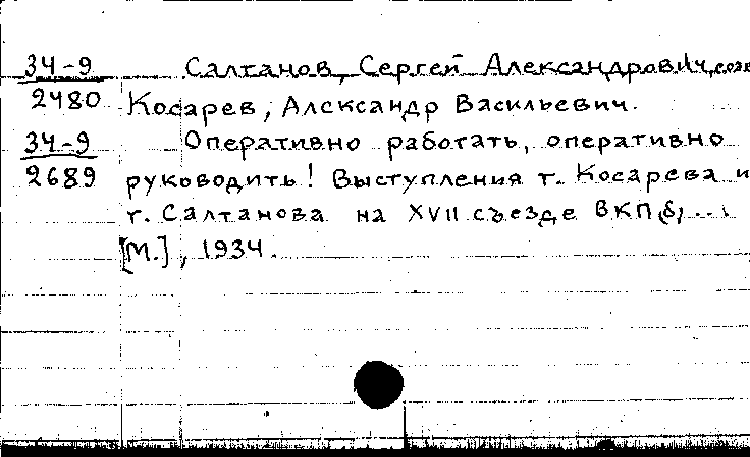 34-9 Салтанов, Сергей Александрович,
2480 Косарев, Александр Васильевич.
34-9 Оперативно работать, оперативно
2689 руководить! Выступления т. Косарева и
т. Салтанова на XVII съезде ВКП(б)...
[М.], 1934.